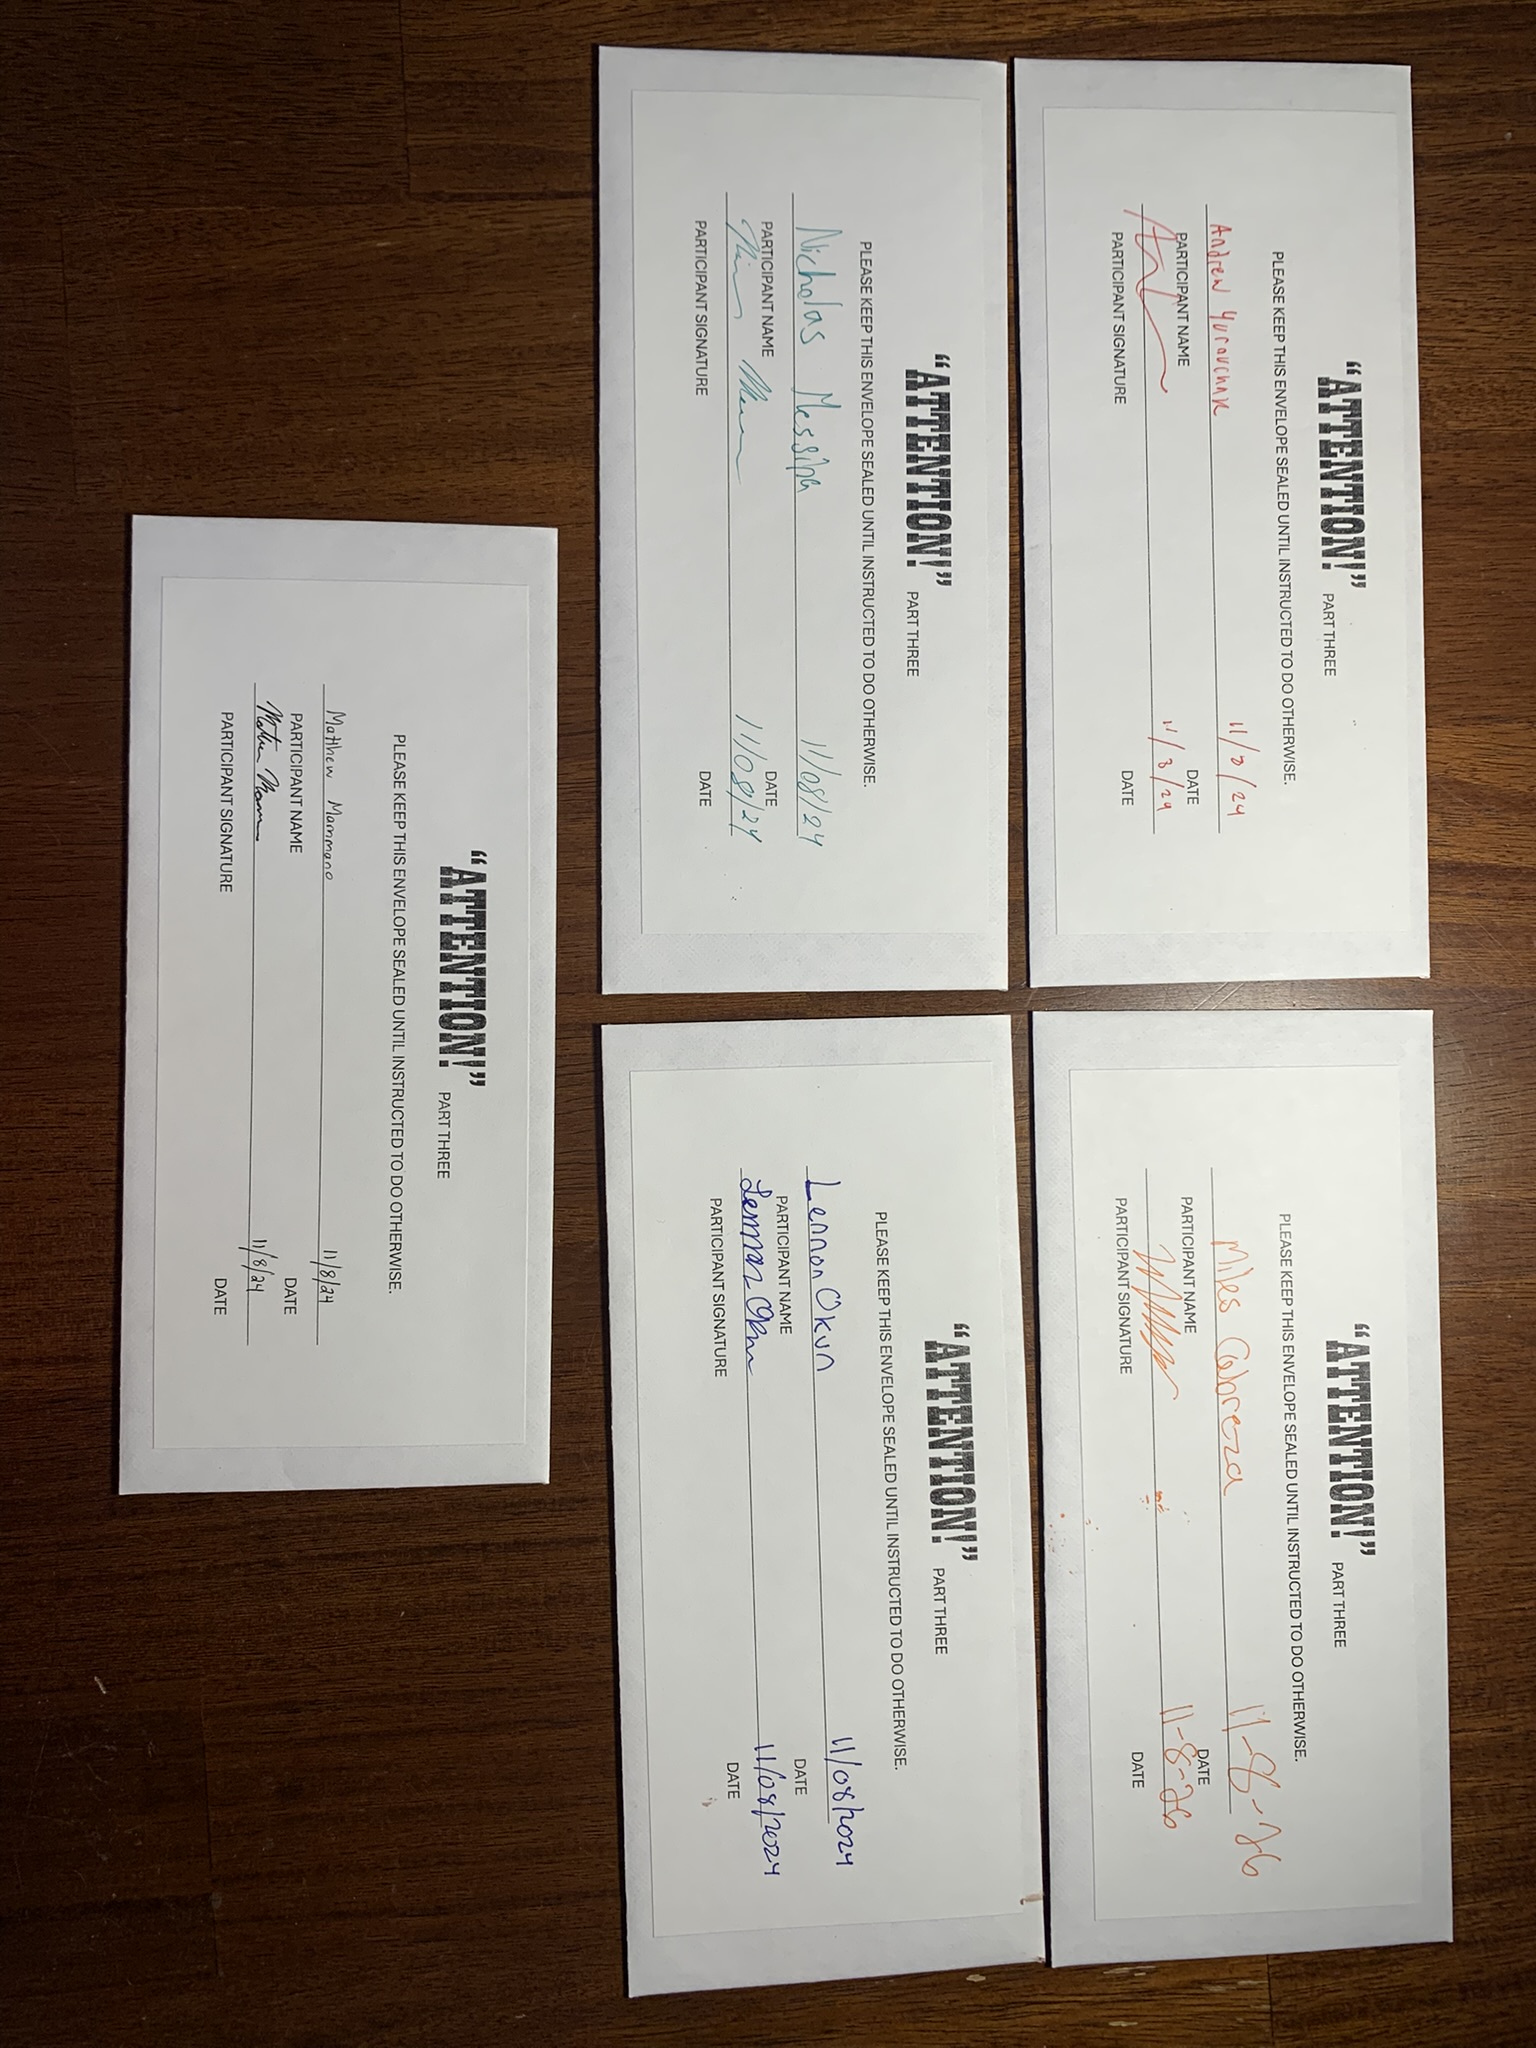 “ATTENTION!” PART THREE
PLEASE KEEP THIS ENVELOPE SEALED UNTIL INSTRUCTED TO DO OTHERWISE.
Andrew Yurouchak 11/8/24
PARTICIPANT NAME DATE
11/8/24
PARTICIPANT SIGNATURE DATE
“ATTENTION!” PART THREE
PLEASE KEEP THIS ENVELOPE SEALED UNTIL INSTRUCTED TO DO OTHERWISE.
Miles Cabreza 11-8-26
PARTICIPANT NAME DATE
11-8-26
PARTICIPANT SIGNATURE DATE
“ATTENTION!” PART THREE
PLEASE KEEP THIS ENVELOPE SEALED UNTIL INSTRUCTED TO DO OTHERWISE.
Nicholas Messina 11/08/24
PARTICIPANT NAME DATE
11/08/24
PARTICIPANT SIGNATURE DATE
“ATTENTION!” PART THREE
PLEASE KEEP THIS ENVELOPE SEALED UNTIL INSTRUCTED TO DO OTHERWISE.
Lennon Okun 11/08/2024
PARTICIPANT NAME DATE
Lennon Okun 11/08/2024
PARTICIPANT SIGNATURE DATE
“ATTENTION!” PART THREE
PLEASE KEEP THIS ENVELOPE SEALED UNTIL INSTRUCTED TO DO OTHERWISE.
Matthew Mammano 11/8/24
PARTICIPANT NAME DATE
Matthew Mammano 11/8/24
PARTICIPANT SIGNATURE DATE